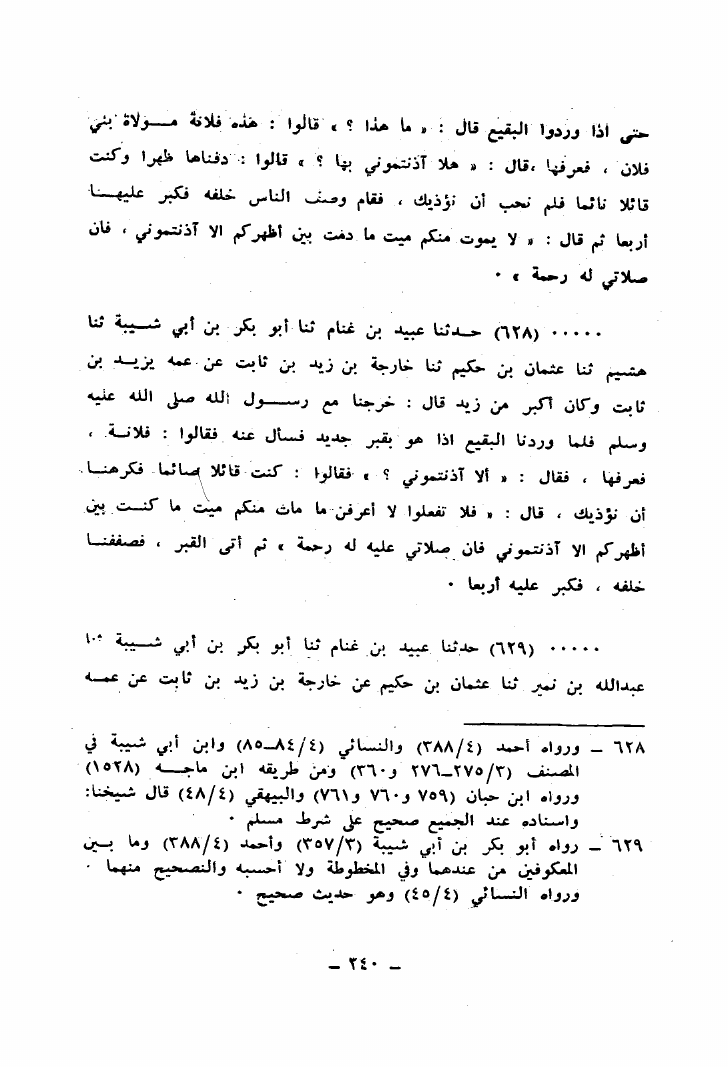 حتى اذا وردوا البقيع قال : « ما هذا ؟ » قالوا : هذه فلانة مـولاة بني
فلان ، فعرفها ،قال : « هلا آذنتموني بها ؟ » قالوا : دفناها ظهرا وكنت
قائلا نائما فلم نحب أن نؤذيك ، فقام وصف الناس خلفه فكبر عليهـا
أربعا ثم قال : « لا يموت منكم ميت ما دمت بين أظهركم الا آذنتموني ، فان
صلاتي له رحمة » ٠
٠٠٠٠٠ (٦٢٨) حـدثنا عبيد بن غنام ثنا أبو بكر بن أبي شـيبة ثنا
هشيم ثنا عثمان بن حكيم ثنا خارجة بن زيد بن ثابت عن عمه يزيـد بن
ثابت وكان أكبر من زيد قال : خرجنا مع رسـول الله صلى الله عليه
وسلم فلما وردنا البقيع اذا هو بقبر جديد فسأل عنه فقالوا : فلانـة ،
فعرفها ، فقال : « ألا آذنتموني ؟ » فقالوا : كنت قائلا صائما فكرهنـا
أن نؤذيك ، قال : « فلا تفعلوا لا أعرفن ما مات منكم ميت ما كنـت بين
أظهركم الا آذنتموني فان صلاتي عليه له رحمة » ثم أتى القبر ، فصففنـا
خلفه ، فكبر عليه أربعا ٠
٠٠٠٠٠ (٦٢٩) حدثنا عبيد بن غنام ثنا أبو بكر بن أبي شـيبة ثنا
عبدالله بن نمير ثنا عثمان بن حكيم عن خارجة بن زيد بن ثابت عن عمـه
٦٢٨ ـ ورواه أحمد (٣٨٨/٤) والنسائي (٨٤/٤ـ٨٥) وابن أبي شيبة في
المصنف (٢٧٥/٣ـ٢٧٦ و٣٦٠) ومن طريقه ابن ماجـه (١٥٢٨)
ورواه ابن حبان (٧٥٩ و٧٦٠ و٧٦١) والبيهقي (٤٨/٤) قال شيخنا:
واسناده عند الجميع صحيح على شرط مسلم ٠
٦٢٩ ـ رواه أبو بكر بن أبي شيبة (٣٥٧/٣) وأحمد (٣٨٨/٤) وما بـين
المعكوفين من عندهما وفي المخطوطة ولا أحسبه والتصحيح منهما ٠
ورواه النسائي (٤٥/٤) وهو حديث صحيح ٠
ـ ٢٤٠ ـ